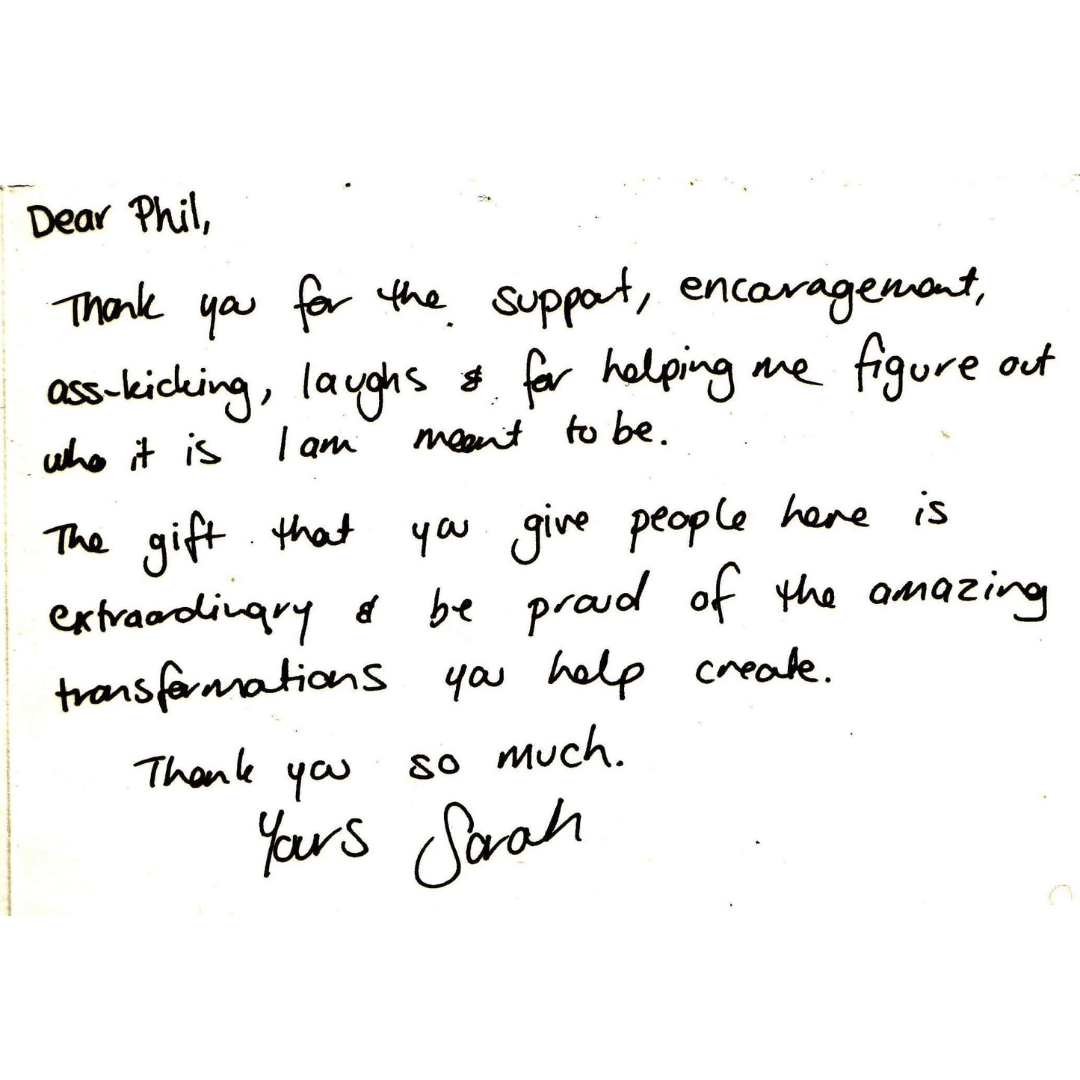 Dear Phil,
Thank you for the support, encouragement,
ass-kicking, laughs & for helping me figure out
who it is I am meant to be.
The gift that you give people here is
extraordinary & be proud of the amazing
transformations you help create.
Thank you so much.
Yours Sarah